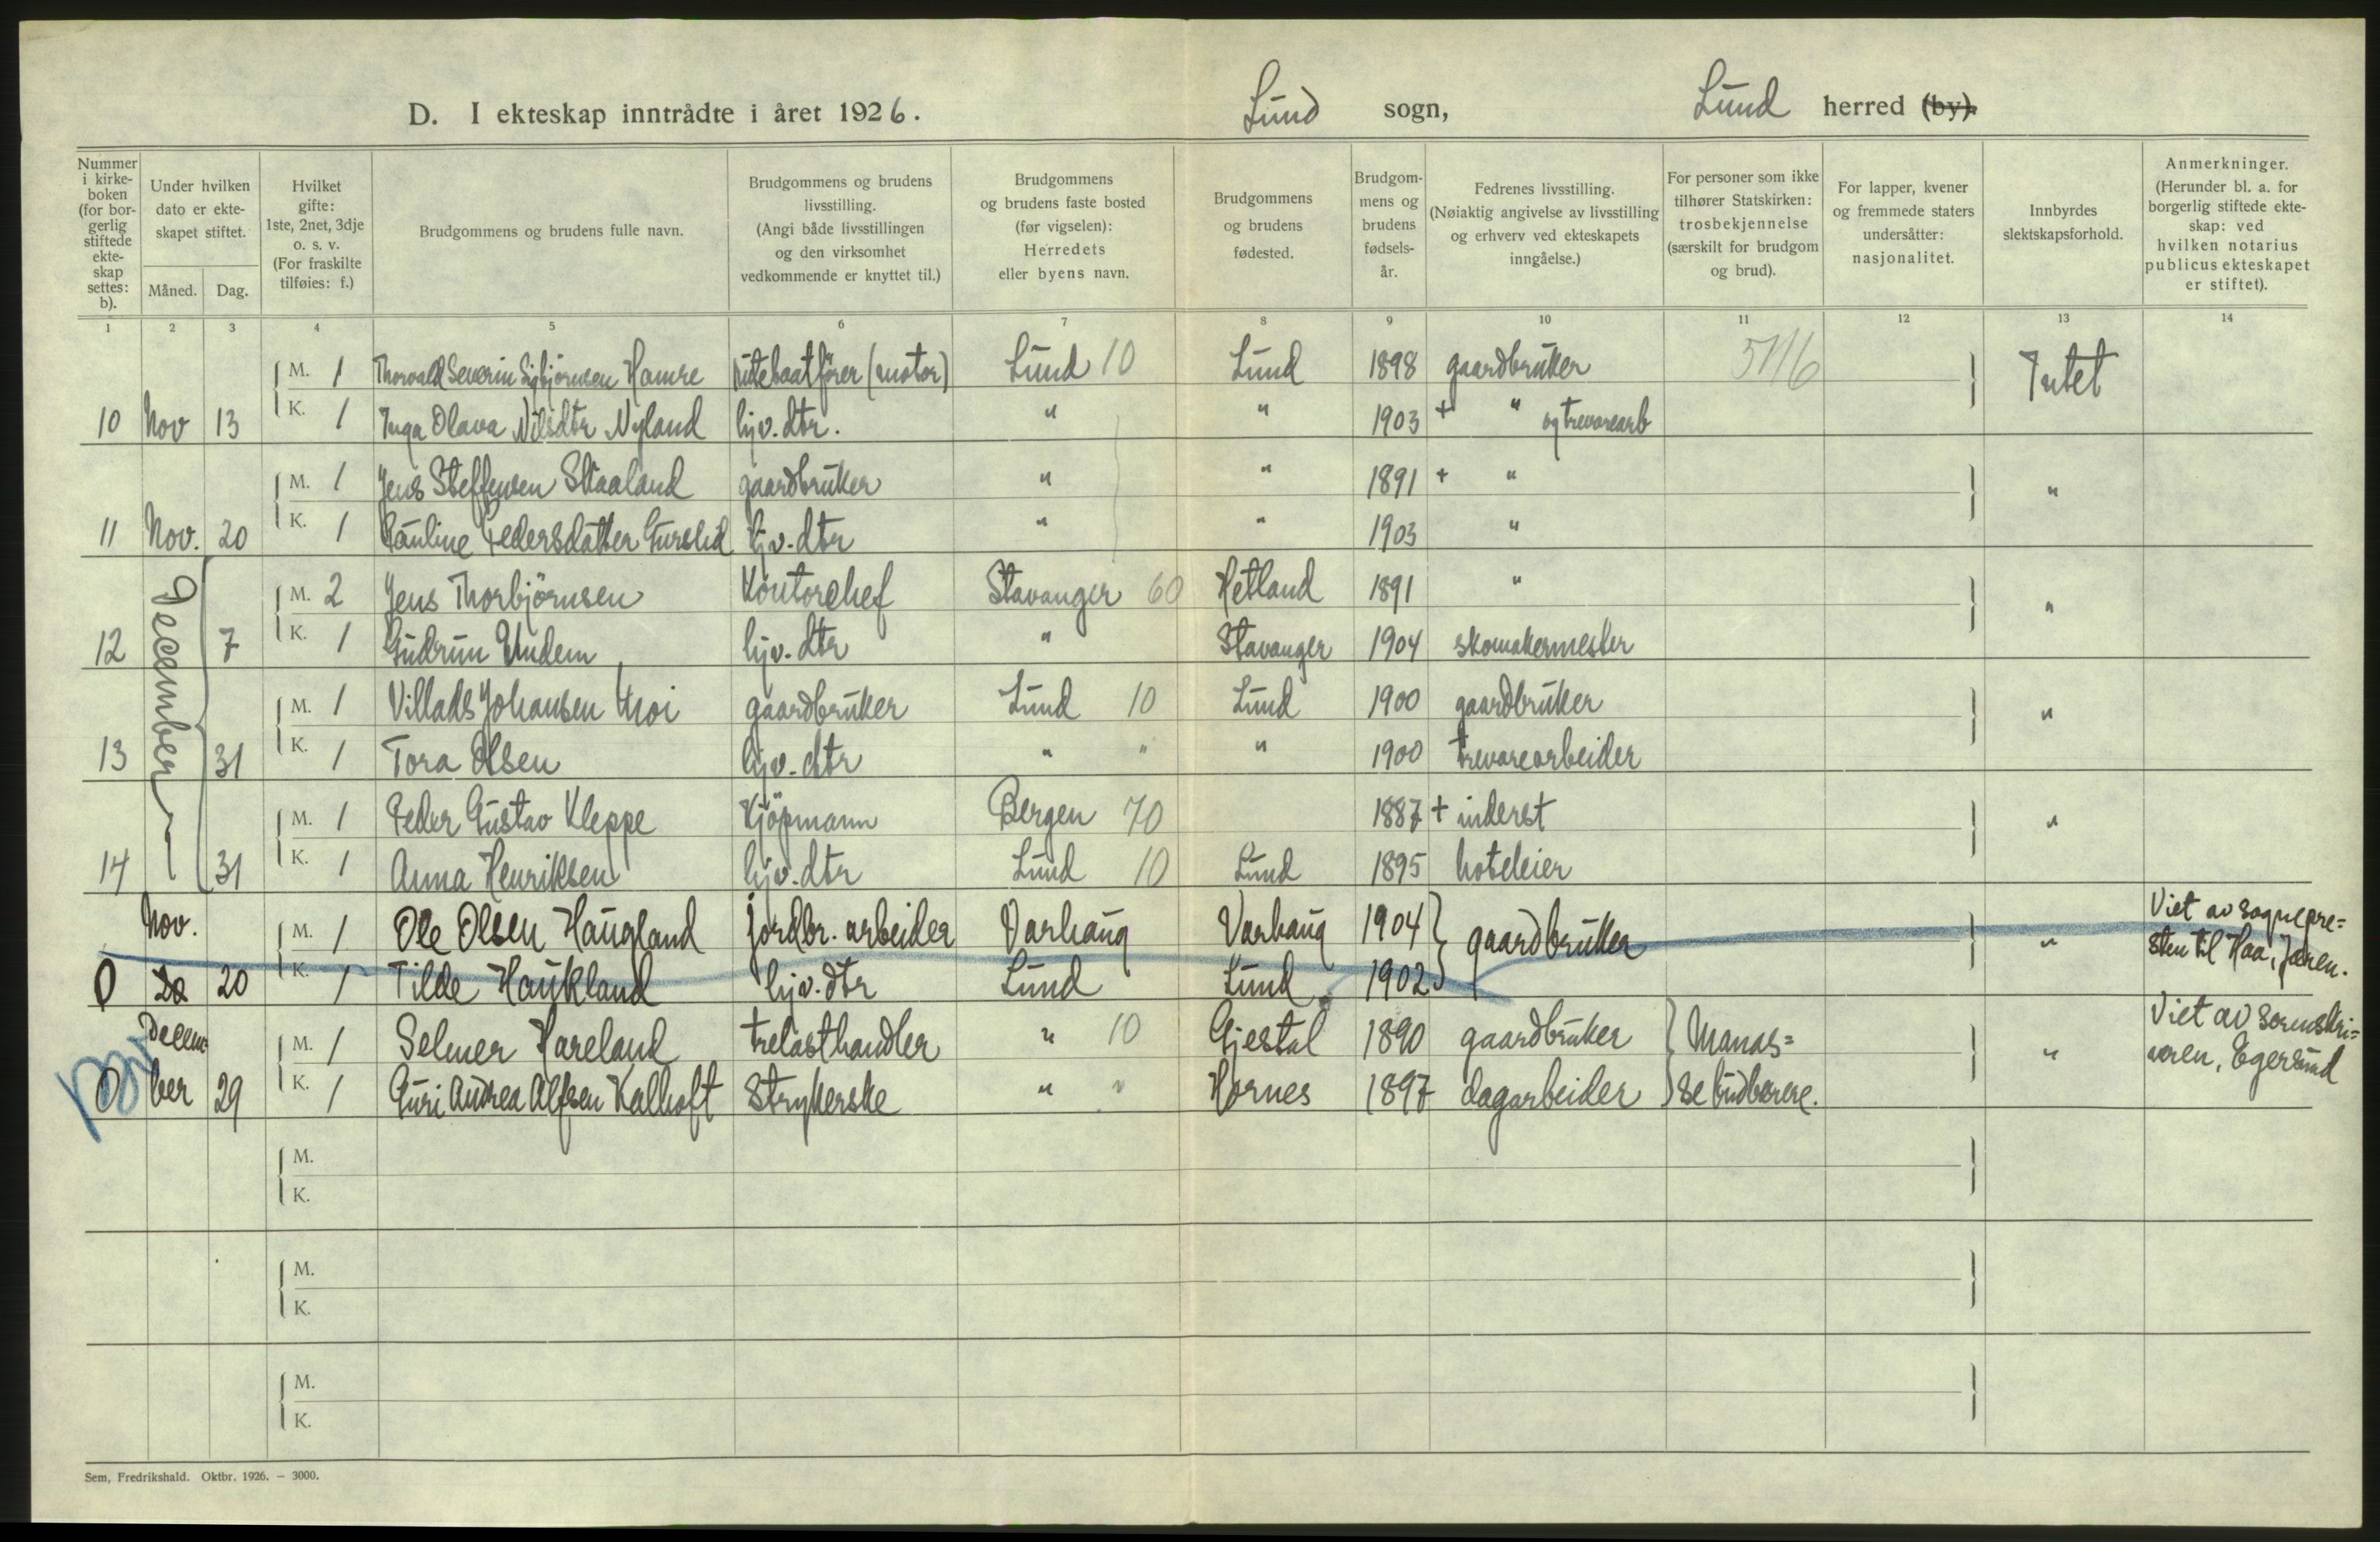 D. I ekteskap inntrådte i året 1926. Lund sogn, Lund herred (by).
Nummer i kirke-boken (for bor-gerlig stiftede ekte-skap settes: b).
Under hvilken dato er ekte-skapet stiftet.
Måned. Dag.
Hvilket gifte: 1ste, 2net, 3dje o. s. v. (For fraskilte tilføies: f.)
Brudgommens og brudens fulle navn.
Brudgommens og brudens livsstilling. (Angi både livsstillingen og den virksomhet vedkommende er knyttet til.)
Brudgommens og brudens faste bosted (før vigselen): Herredets eller byens navn.
Brudgommens og brudens fødested.
Brudgom-mens og brudens fødsels-år.
Fedrenes livsstilling. (Nøiaktig angivelse av livsstilling og erhverv ved ekteskapets inngåelse.)
For personer som ikke tilhører Statskirken: trosbekjennelse (særskilt for brudgom og brud).
For lapper, kvener og fremmede staters undersåtter: nasjonalitet.
Innbyrdes slektskapsforhold.
Anmerkninger. (Herunder bl. a. for borgerlig stiftede ekte-skap: ved hvilken notarius publicus ekteskapet er stiftet).
1 2 3 4 5 6 7 8 9 10 11 12 13 14
M. 1 Thorvald Severin Sigbjörnsen Hamre rutebaatförer (motor) Lund 10 Lund 1898 gaardbruker 5116 Intet
10 Nov 13 K. 1 Inga Olava Nilsdtr Nyland hjv. dtr. " " 1903 + " og trevarearb
M. 1 Jens Steffensen Skaaland gaardbruker " " 1891 + " "
11 Nov. 20 K. 1 Pauline Pedersdatter Gursli hjv. dtr " " 1903 "
December
M. 2 Jens Thorbjörnsen Kontorchef Stavanger 60 Hetland 1891 " "
12 7 K. 1 Gudrun Undem hjv. dtr " Stavanger 1904 skomakermester
M. 1 Villads Johansen Moi gaardbruker Lund 10 Lund 1900 gaardbruker "
13 31 K. 1 Tora Olsen hjv. dtr " " " 1900 trevarearbeider
M. 1 Peder Gustav Kleppe Kjöpmann Bergen 70 1887 + inderst "
14 31 K. 1 Anna Henriksen hjv. dtr Lund 10 Lund 1895 hoteleier
Nov. M. 1 Ole Olsen Haugland jordbr. arbeider Varhaug Varhaug 1904 gaardbruker " Viet av sognepre=
0 20 K. 1 Tilde Haukland hjv. dtr Lund Lund 1902 sten til Haa, Jæren.
Decem M. 1 Selmer Hareland trelasthandler " 10 Gjestal 1890 gaardbruker Manas= " Viet av sorenskri=
0 ber 29 K. 1 Guri Andrea Alfsen Kalhoft Strykerske " " Hornes 1897 dagarbeider se budbærere. veren, Egersund
M.
K.
M.
K.
M.
K.
Sem, Fredrikshald. Oktbr. 1926. — 3000.